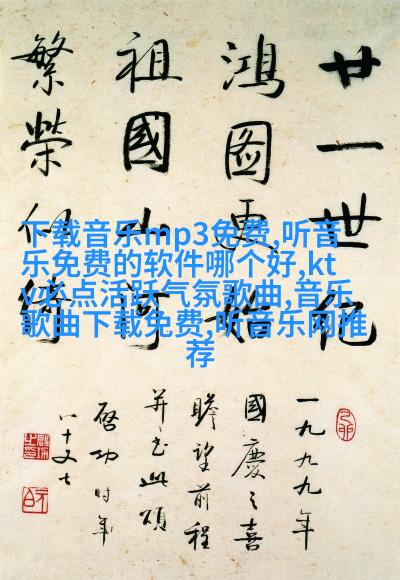 廿一世纪
鸿图更始
祖國山河
繁榮似綺
下载音乐mp3免费,听音
乐免费的软件哪个好,kt
v必点活跃气氛歌曲,音乐
歌曲下载免费,听音乐网推
荐
一九九九年
國慶之喜
瞻望前程
并书此頌
啓功时年
八十又七